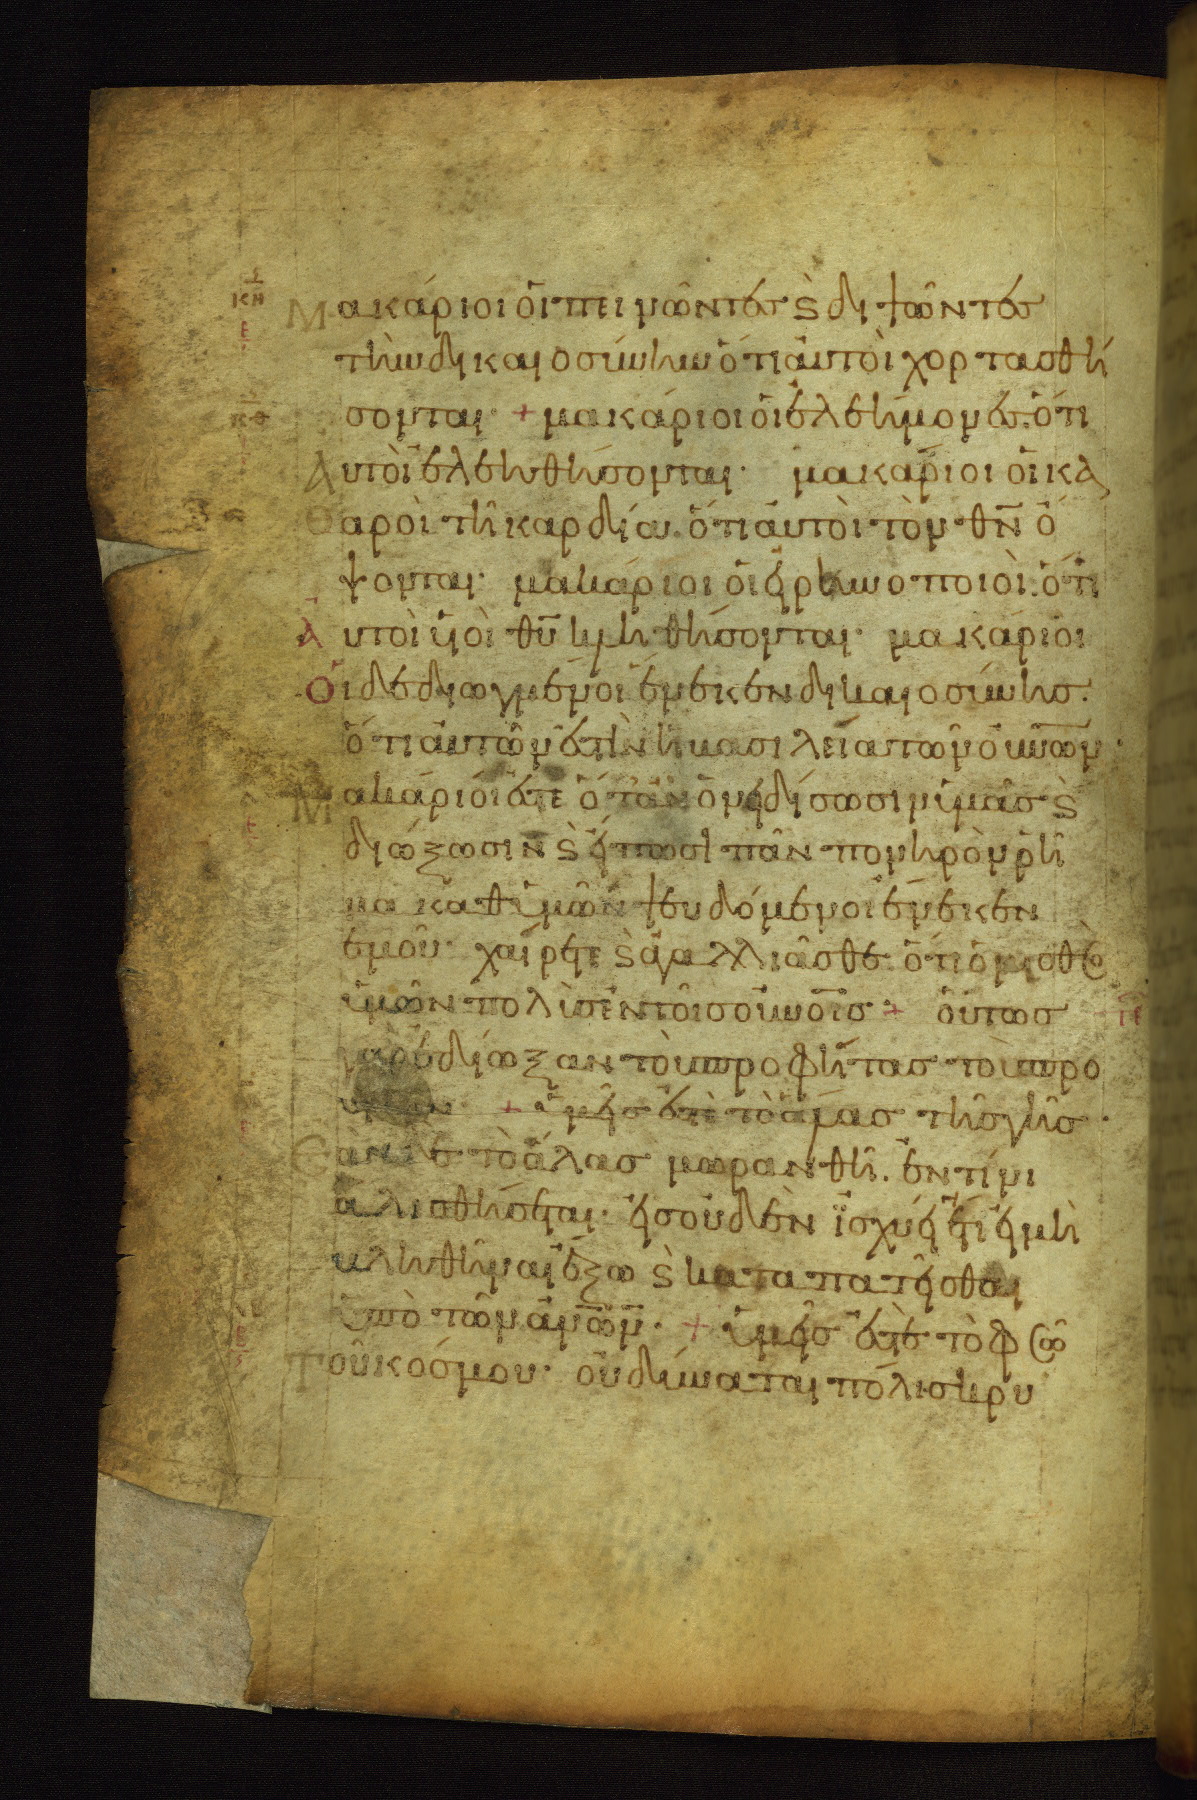 Μακάριοι ὁι πεινῶντες ϗ διψῶντες
τὴν δικαιοσύνην ὅτι ἀυτοὶ χορτασθή
σονται· + μακάριοι ὁι ἐλεήμονες· ὅτι
ἀυτοὶ ἐλεηθήσονται· μακάριοι ὁι κα
θαροὶ τῆ καρδία. ὅτι ἀυτοὶ τὸν θν̅ ὄ
ψονται· μακάριοι ὁι ἐιρηνοποιοὶ. ὅτι
ἀυτοὶ ὑιοὶ θυ̅ κληθήσονται· μακάριοι
Ὁι δεδιωγμένοι ἕνεκεν δικαιοσύνησ.
ὅτι ἀυτῶν ἐστὶν ἡ βασιλεία τῶν ὀυνων·
Μακάριοί ἐστε ὅταν ὀνειδίσωσιν ὑμᾶσ ϗ
διώξωσιν ϗ ἔιπωσι πᾶν πονηρὸν ῥῆ
μα καθ ὑμῶν ψευδόμενοι ἕνεκεν
ἐμοῦ· χαίρετε ϗ ἀγαλλιᾶσθε ὅτι ὁ μισθὸσ
ὑμῶν πολὺσ ἐν τοῖσ ὀυνοισ· + ὅυτωσ
γὰρ ἐδίωξαν τοὺσ προφήτασ τοὺσ προ
ὑμῶν· + ὑμεῖσ ἐστὲ τὸ ἅλασ τῆσ γῆσ·
Ἐὰν δε τὸ ἅλασ μωρανθῆ. ἐν τίνι
ἁλισθήσεται· ἐισ οὐδὲν ἰσχύει ἔτι ἐι μὴ
βληθῆναι ἔξω ϗ καταπατεῖσθαι
ὑπὸ τῶν ἀνων· + ὑμεῖσ ἐστε τὸ φῶσ
Τοῦ κόσμου· ὀυ δύναται πόλισ κρυ